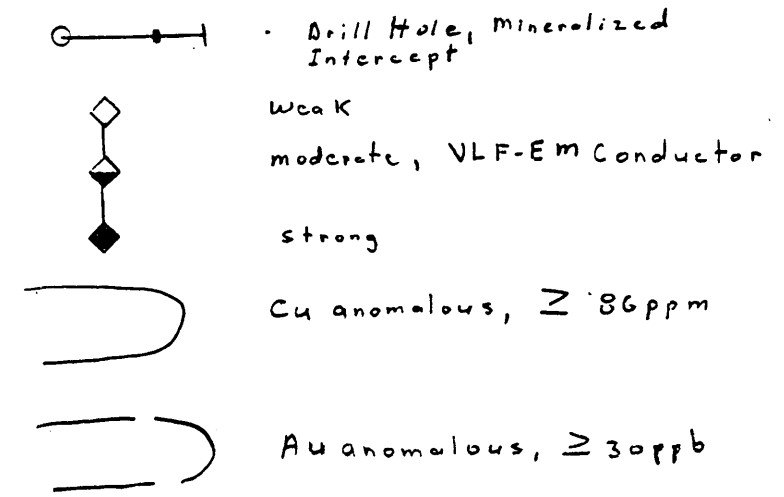 Drill Hole, Mineralized
Intercept
Weak
moderate, VLF-EM Conductor
strong
Cu anomalous, ≥ 86ppm
Au anomalous, ≥ 30ppb